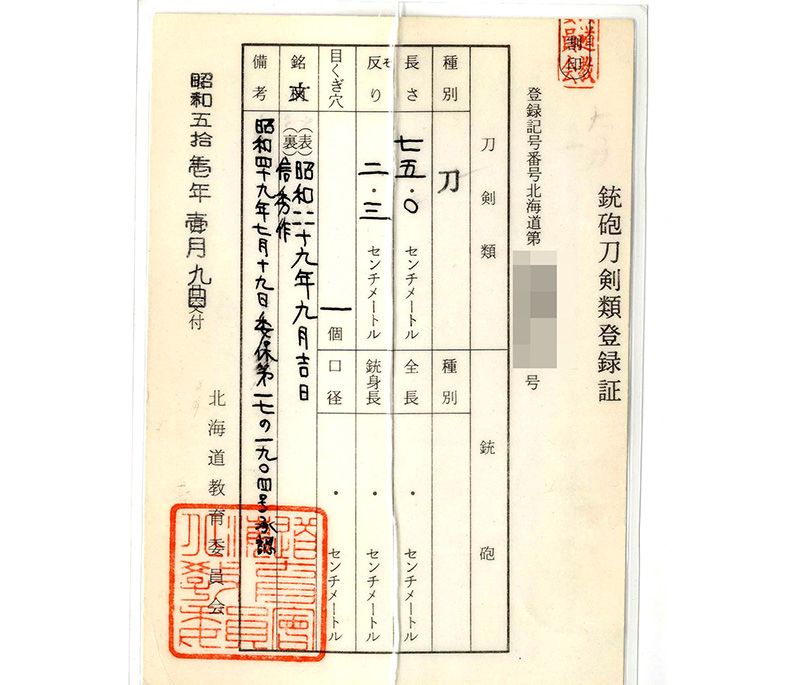 割印
銃砲刀剣類登録証
登録記号番号北海道第
号
刀剣類
銃砲
種別
刀
種別
長さ
七五.〇
センチメートル
全長
・
センチメートル
反り
そ
二.三
センチメートル
銃身長
・
センチメートル
目くぎ穴
一個
口径
・
センチメートル
銘文
(表)昭和二十九年九月吉日
(裏)信秀作
備考
昭和四十九年七月十九日委保第一七の一九〇四号承認
昭和五拾壱年壹月九日交付
北海道教育委員会